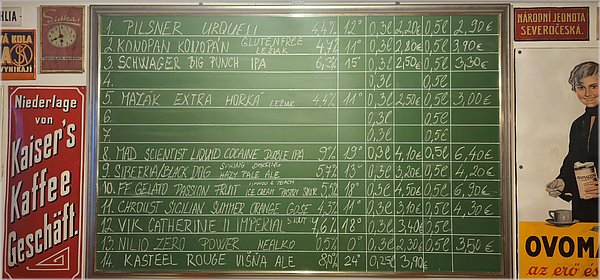 HLIA
Á KOLA
VYNIKAJÍ
Niederlage
von
Kaiser's
Kaffee
Geschäft.
1. PILSNER URQUELL 4,4% 12° 0,3l 2,20€ 0,5l 2,90€
2. KONOPÁN KONOPÁN GLUTENFREE LEŽIAK 4,7% 11° 0,3l 2,80€ 0,5l 3,90€
3. SCHWAGER BIG PUNCH IPA 6,3% 15° 0,3l 2,50€ 0,5l 3,30€
4. 0,3l 0,5l
5. MAZÁK EXTRA HORKÁ LEŽIAK 4,4% 11° 0,3l 2,50€ 0,5l 3,00€
6. 0,3l 0,5l
7. 0,3l 0,5l
8. MAD SCIENTIST LIQUID COCAINE DOUBLE IPA 9% 19° 0,3l 4,10€ 0,5l 6,40€
9. SIBEERIA/BLACK DOG HAZY PALE ALE 5,4% 13° 0,3l 3,20€ 0,5l 4,20€
10. FF GELATO PASSION FRUIT ICE CREAM PASTRY SOUR 5,5% 18° 0,3l 4,50€ 0,5l 6,90€
11. CHROUST SICILIAN SUMMER ORANGE GOSE 4,3% 11° 0,3l 3,10€ 0,5l 4,30€
12. VIK CATHERINE II IMPERIAL STOUT 7,6% 18° 0,3l 3,40€ 0,5l
13. NILIO ZERO POWER NEALKO 0,5% 0° 0,3l 2,30€ 0,5l 3,50€
14. KASTEEL ROUGE VIŠŇA ALE 8,0% 24° 0,25l 3,90€
NÁRODNÍ JEDNOTA
SEVEROČESKÁ.
OVOMA
az erő és